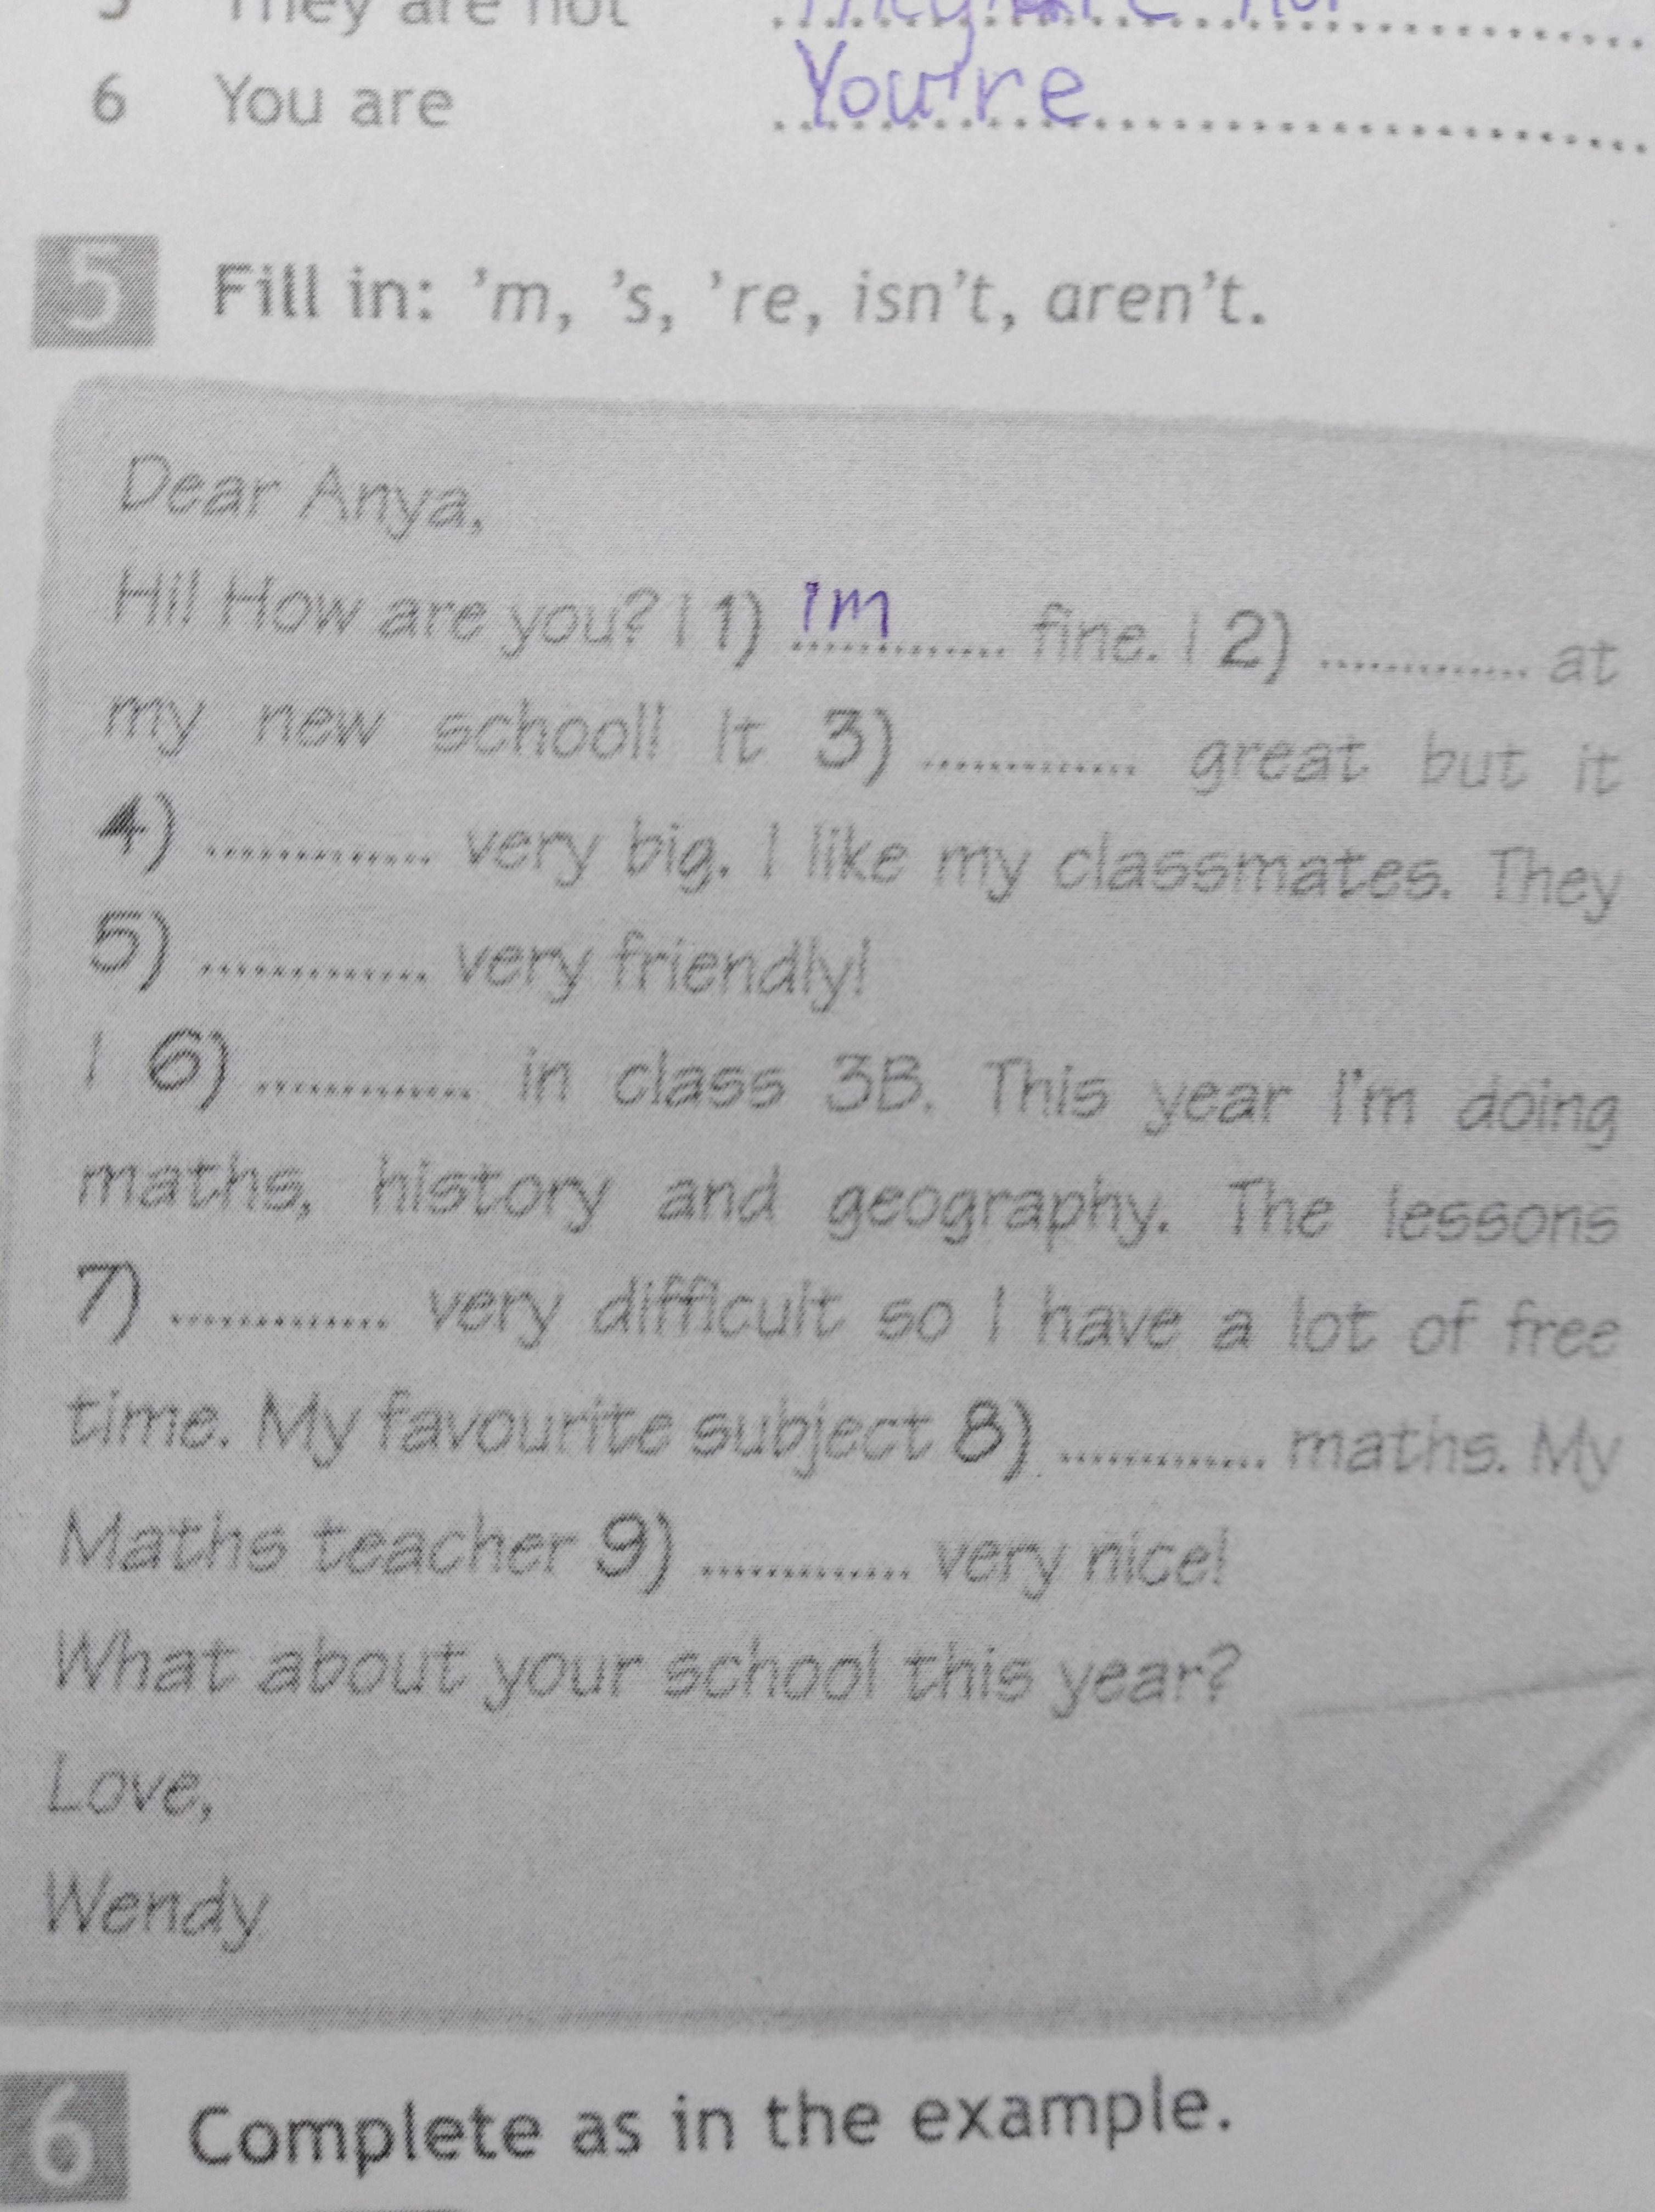 They are not
6 You are You're
5 Fill in: 'm, 's, 're, isn't, aren't.
Dear Anya,
Hi! How are you? I 1) 'm fine. I 2) ............. at
my new school! It 3) ............. great but it
4) ............. very big. I like my classmates. They
5) ............. very friendly!
I 6) ............. in class 3B. This year I'm doing
maths, history and geography. The lessons
7) ............. very difficult so I have a lot of free
time. My favourite subject 8) ............. maths. My
Maths teacher 9) ............. very nice!
What about your school this year?
Love,
Wendy
6 Complete as in the example.